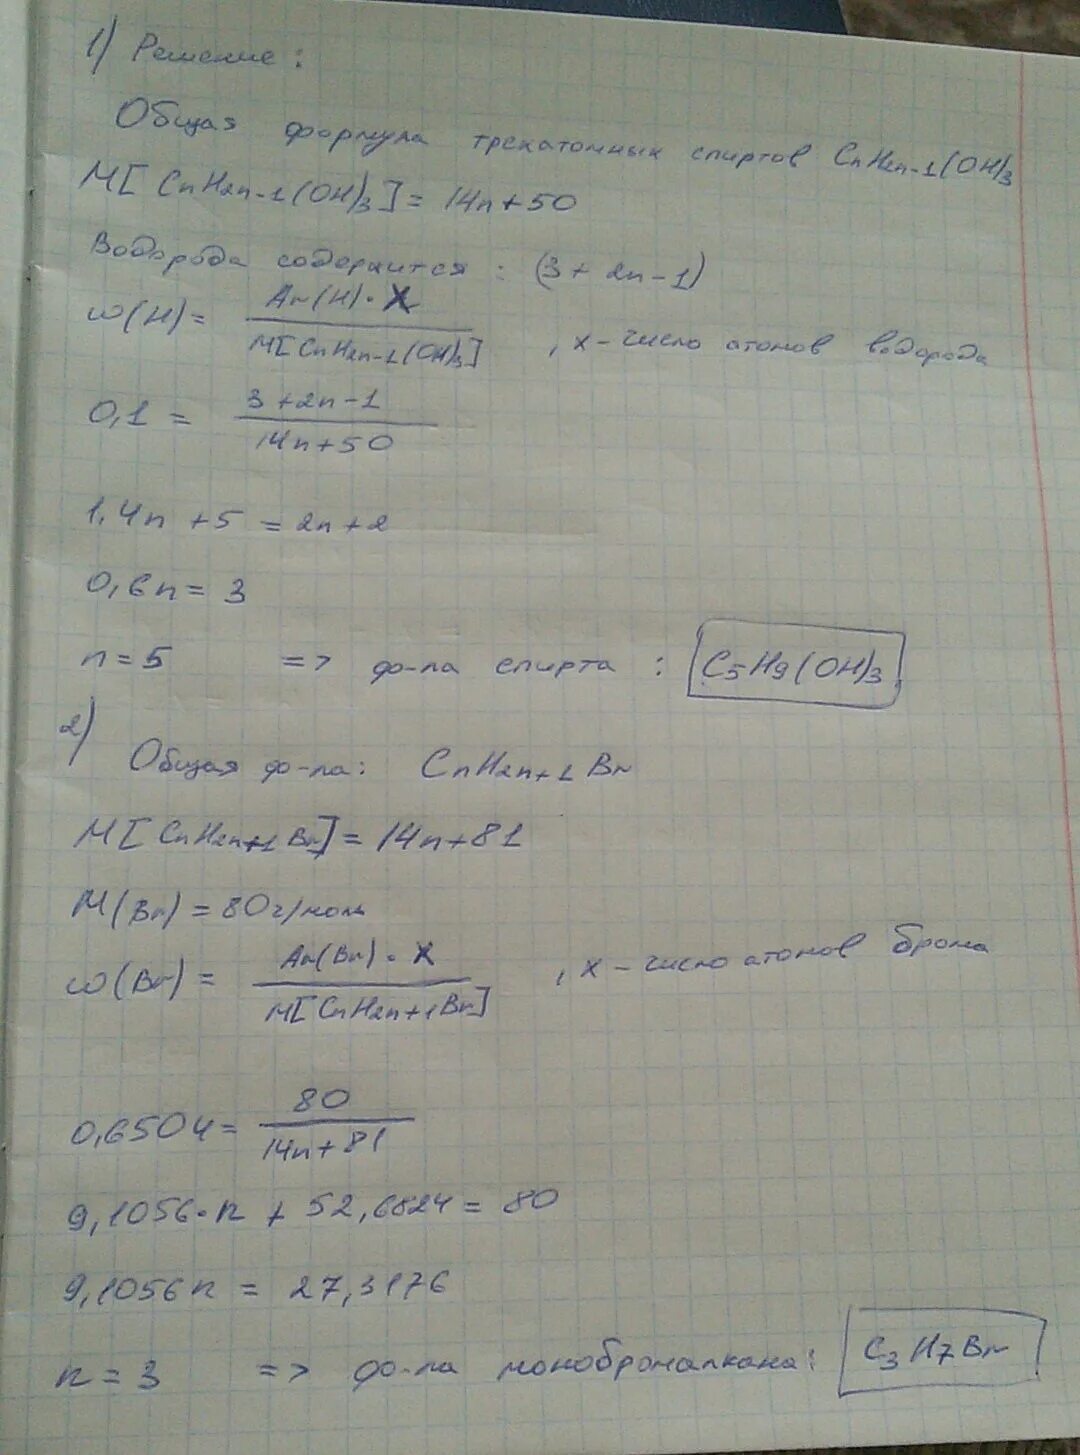 1) Решение:
Общая формула трехатомных спиртов CnH2n-1(OH)3
M[CnH2n-1(OH)3] = 14n+50
Водорода содержится : (3+2n-1)
w(H) = Ar(H)·x / M[CnH2n-1(OH)3] , x - число атомов водорода
0,1 = 3+2n-1 / 14n+50
1,4n + 5 = 2n+2
0,6n = 3
n = 5 => ф-ла спирта : C5H9(OH)3
2)
Общая ф-ла: CnH2n+1Br
M[CnH2n+1Br] = 14n+81
M(Br) = 80г/моль
w(Br) = Ar(Br)·x / M[CnH2n+1Br] , x - число атомов брома
0,6504 = 80 / 14n+81
9,1056·n + 52,6824 = 80
9,1056n = 27,3176
n = 3 => ф-ла монобромалкана: C3H7Br